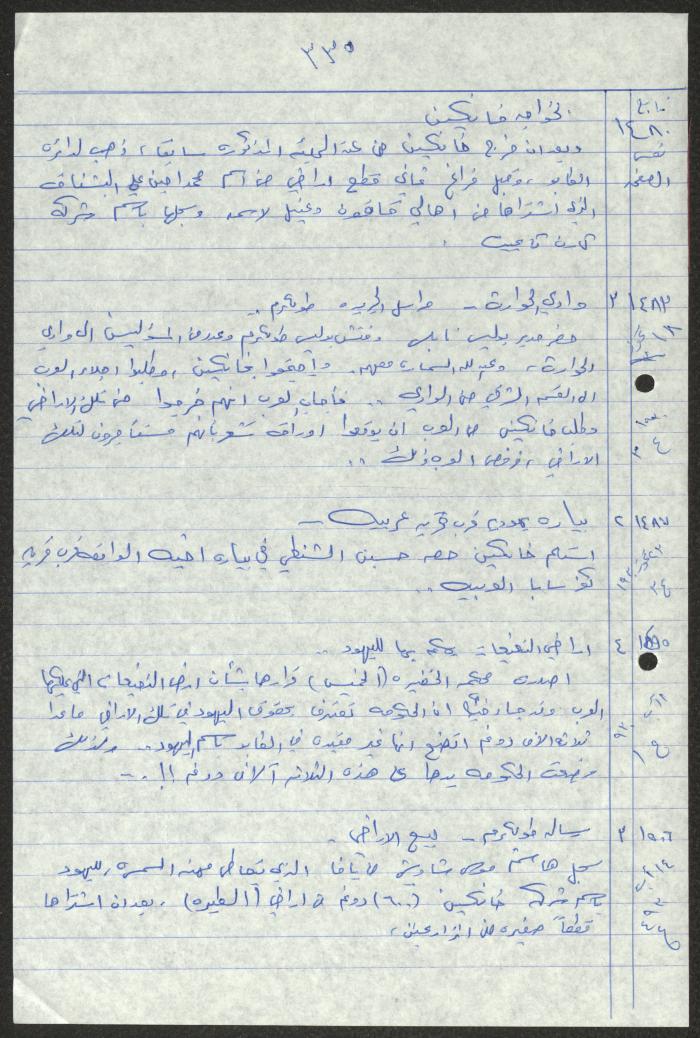 ٣٣٥
تابع
١٤٨٠
نفس
الصفحة
الخواجه خانكين
وبعد ان خرج خانكين من عند الهيئة المذكورة سابقا، ذهب لدائرة
الطابو، وعمل فراغ ثماني قطع اراضي من اسم محمد امين علي البشناق
الذي اشتراها من اهالي قاقون وعتيل لاسمه وسجلها باسم شركة
كيرن كاييمت .
١٤٨٣ ٣ وادي الحوارث - مراسل الجريدة طولكرم ..
حضر مدير بوليس نابلس ومفتش بوليس طولكرم وعدد من المسؤولين الى وادي
الحوارث، وعبدالله السمارة معهم. واجتمعوا بخانكين، وطلبوا اجلاء العرب
الى القسم الشرقي من الوادي .. فأجاب العرب انهم خرجوا من تلك الاراضي
وطلب خانكين من العرب ان يوقعوا اوراق تشعر بأنهم مستأجرون لتلك
الاراضي، فرفض العرب ذلك ..
١٤٨٧ ٢ بياره يهودي قرب قرية عربية -
استلم خانكين حصة حسين الشنطي في بيارة اخيه الواقعة قرب قرية
كفر سابا العربية ..
٤ اراضي النفيعات يحكم بها لليهود ..
اصدرت محكمة الخضيره (الخميس) قرارها بشأن ارض النفيعات التي يملكها
العرب وقد جاء فيه ان الحكومة تعترف بحقوق اليهود في تلك الاراضي ما عدا
ثلاثة الاف دونم اتضح انها غير مقيدة في الطابو باسم اليهود .. ولذلك
وضعت الحكومة يدها على هذه الثلاثة آلاف دونم !! . -
١٥٠٦ ٣ رسالة طولكرم - بيع الاراضي .
سجل هاشم شاويش من يافا الذي تعاطى مهنة السمسرة لليهود
باسم شركة خانكين (٦٠٠) دونم من اراضي (الطيره)، بعد ان اشتراها
قطعاً صغيره من المزارعين،